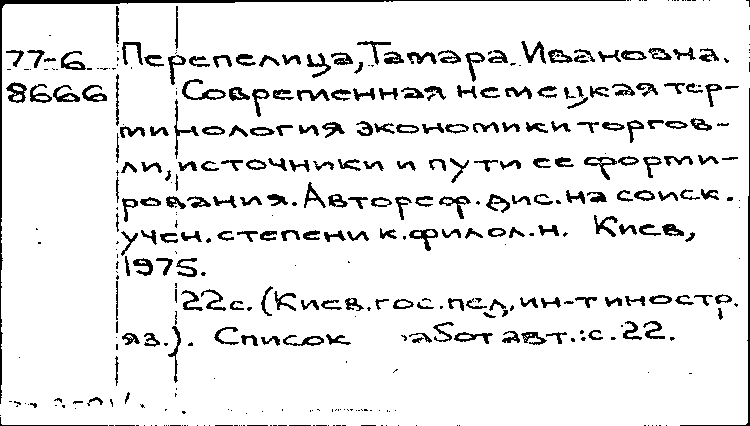 77-6 Перепелица, Тамара Ивановна.
8666 Современная немецкая тер-
минология экономики торгов-
ли, источники и пути ее форми-
рования. Автореф. дис. на соиск.
учен. степени к. филол. н. Киев,
1975.
22 с. (Киев. гос. пед. ин-т иностр.
яз.). Список абот авт.: с. 22.